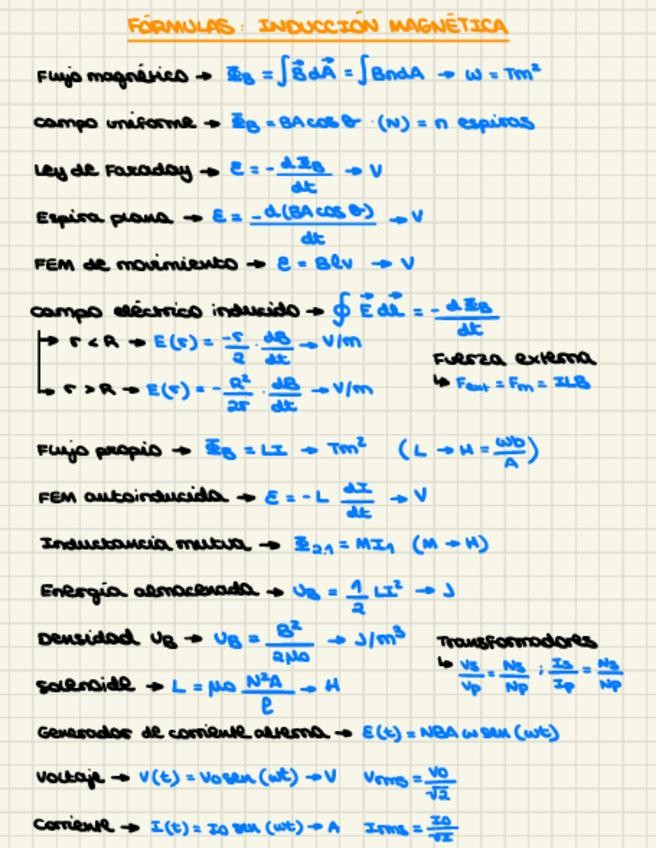 FÓRMULAS: INDUCCIÓN MAGNÉTICA
Flujo magnético → Φ_B = ∫B⃗ dA⃗ = ∫BndA → ω = Tm²
campo uniforme → Φ_B = BA cos θ · (N) = n espiras
Ley de Faraday → ε = - dΦ_B/dt → V
Espira plana → ε = -d(BA cos θ)/dt → V
FEM de movimiento → ε = Blv → V
campo eléctrico inducido → ∮ E⃗ dl⃗ = - dΦ_B/dt
↳ r < R → E(r) = -r/2 · dB/dt → V/m
↳ r > R → E(r) = - R²/2r · dB/dt → V/m
Fuerza externa
↳ F_ext = F_m = ILB
Flujo propio → Φ_B = LI → Tm² (L → H = Wb/A)
FEM autoinducida → ε = -L dI/dt → V
Inductancia mutua → Φ_2,1 = MI_1 (M → H)
Energía almacenada → U_B = 1/2 LI² → J
Densidad U_B → U_B = B²/2μ0 → J/m³
Transformadores
↳ Vs/Vp = Ns/Np ; Is/Ip = Ns/Np
Solenoide → L = μ0 N²A/ℓ → H
Generador de corriente alterna → ε(t) = NBA ω sen (ωt)
Voltaje → V(t) = V0 sen (ωt) → V V_rms = V0/√2
Corriente → I(t) = I0 sen (ωt) → A I_rms = I0/√I